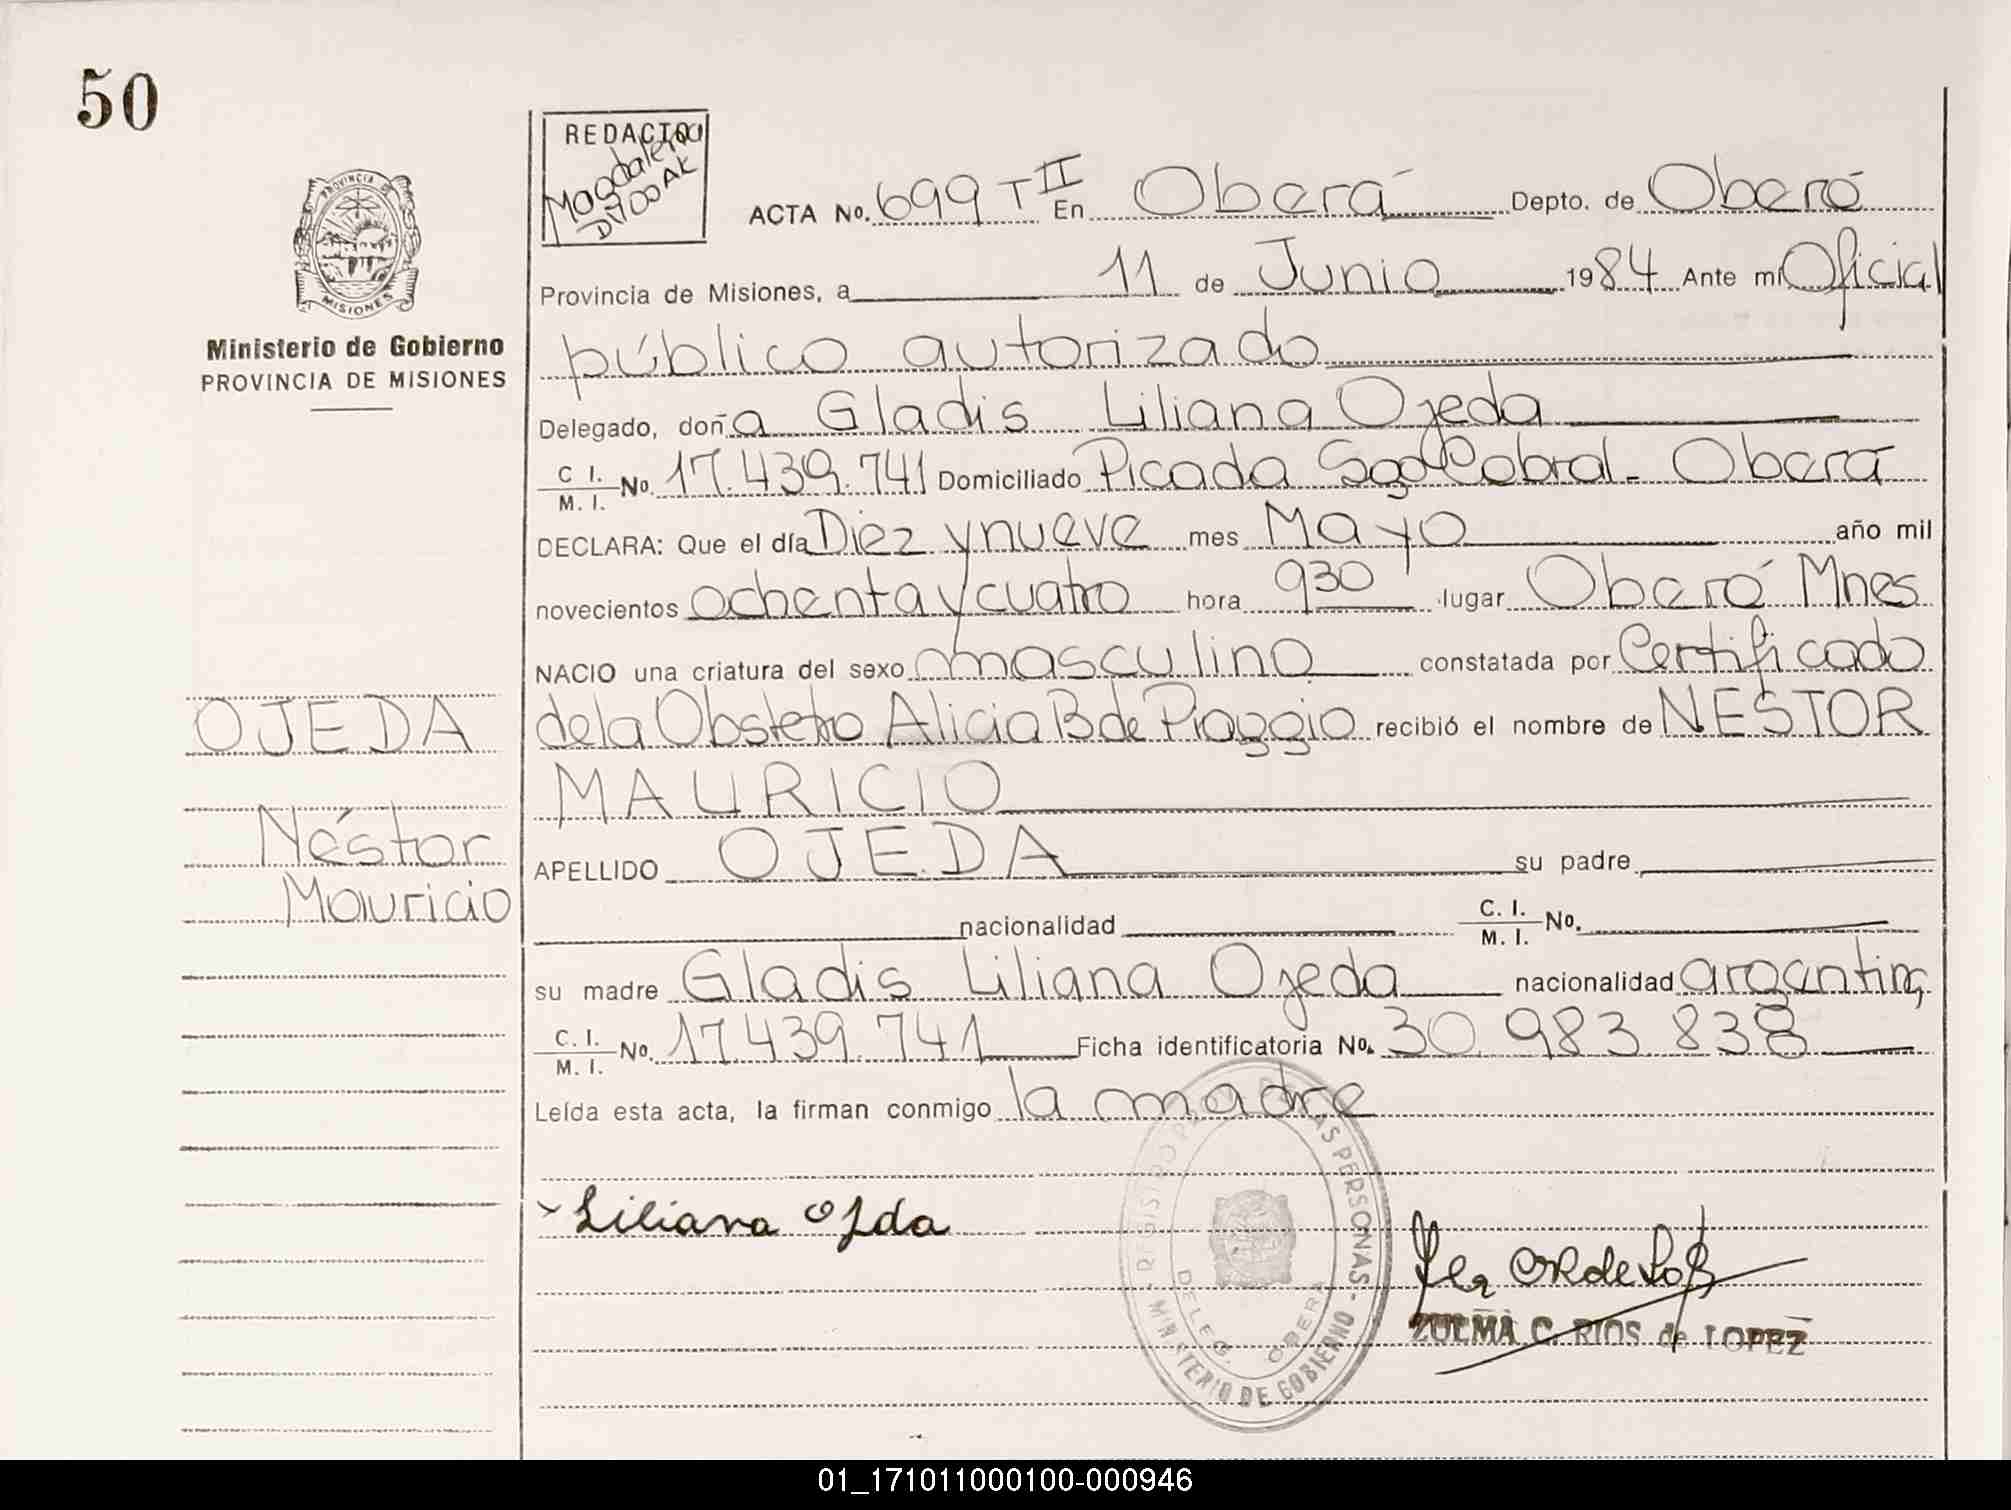 50
PROVINCIA DE
MISIONES
Ministerio de Gobierno
PROVINCIA DE MISIONES
OJEDA
Néstor
Mauricio
REDACTO
Magdalena
ACTA No. 699 T II En Oberá Depto. de Oberá
Provincia de Misiones, a 11 de Junio 1984 Ante mi Oficial
público autorizado
Delegado, doña Gladis Liliana Ojeda
C. I. / M. I. No. 17.439.741 Domiciliado Picada Sgo Cabral - Oberá
DECLARA: Que el día Diez y nueve mes Mayo año mil
novecientos ochenta y cuatro hora 930 lugar Oberá Mnes
NACIO una criatura del sexo masculino constatada por Certificado
de la Obstetra Alicia B de Piaggio recibió el nombre de NÉSTOR
MAURICIO
APELLIDO OJEDA su padre
nacionalidad C. I. / M. I. No.
su madre Gladis Liliana Ojeda nacionalidad argentina
C. I. / M. I. No. 17.439.741 Ficha identificatoria No. 30.983.838
Leída esta acta, la firman conmigo la madre
x Liliana Ojda
ZULMA C. RIOS de LOPEZ
MINISTERIO DE GOBIERNO
DELEG. OBERA
01_171011000100-000946